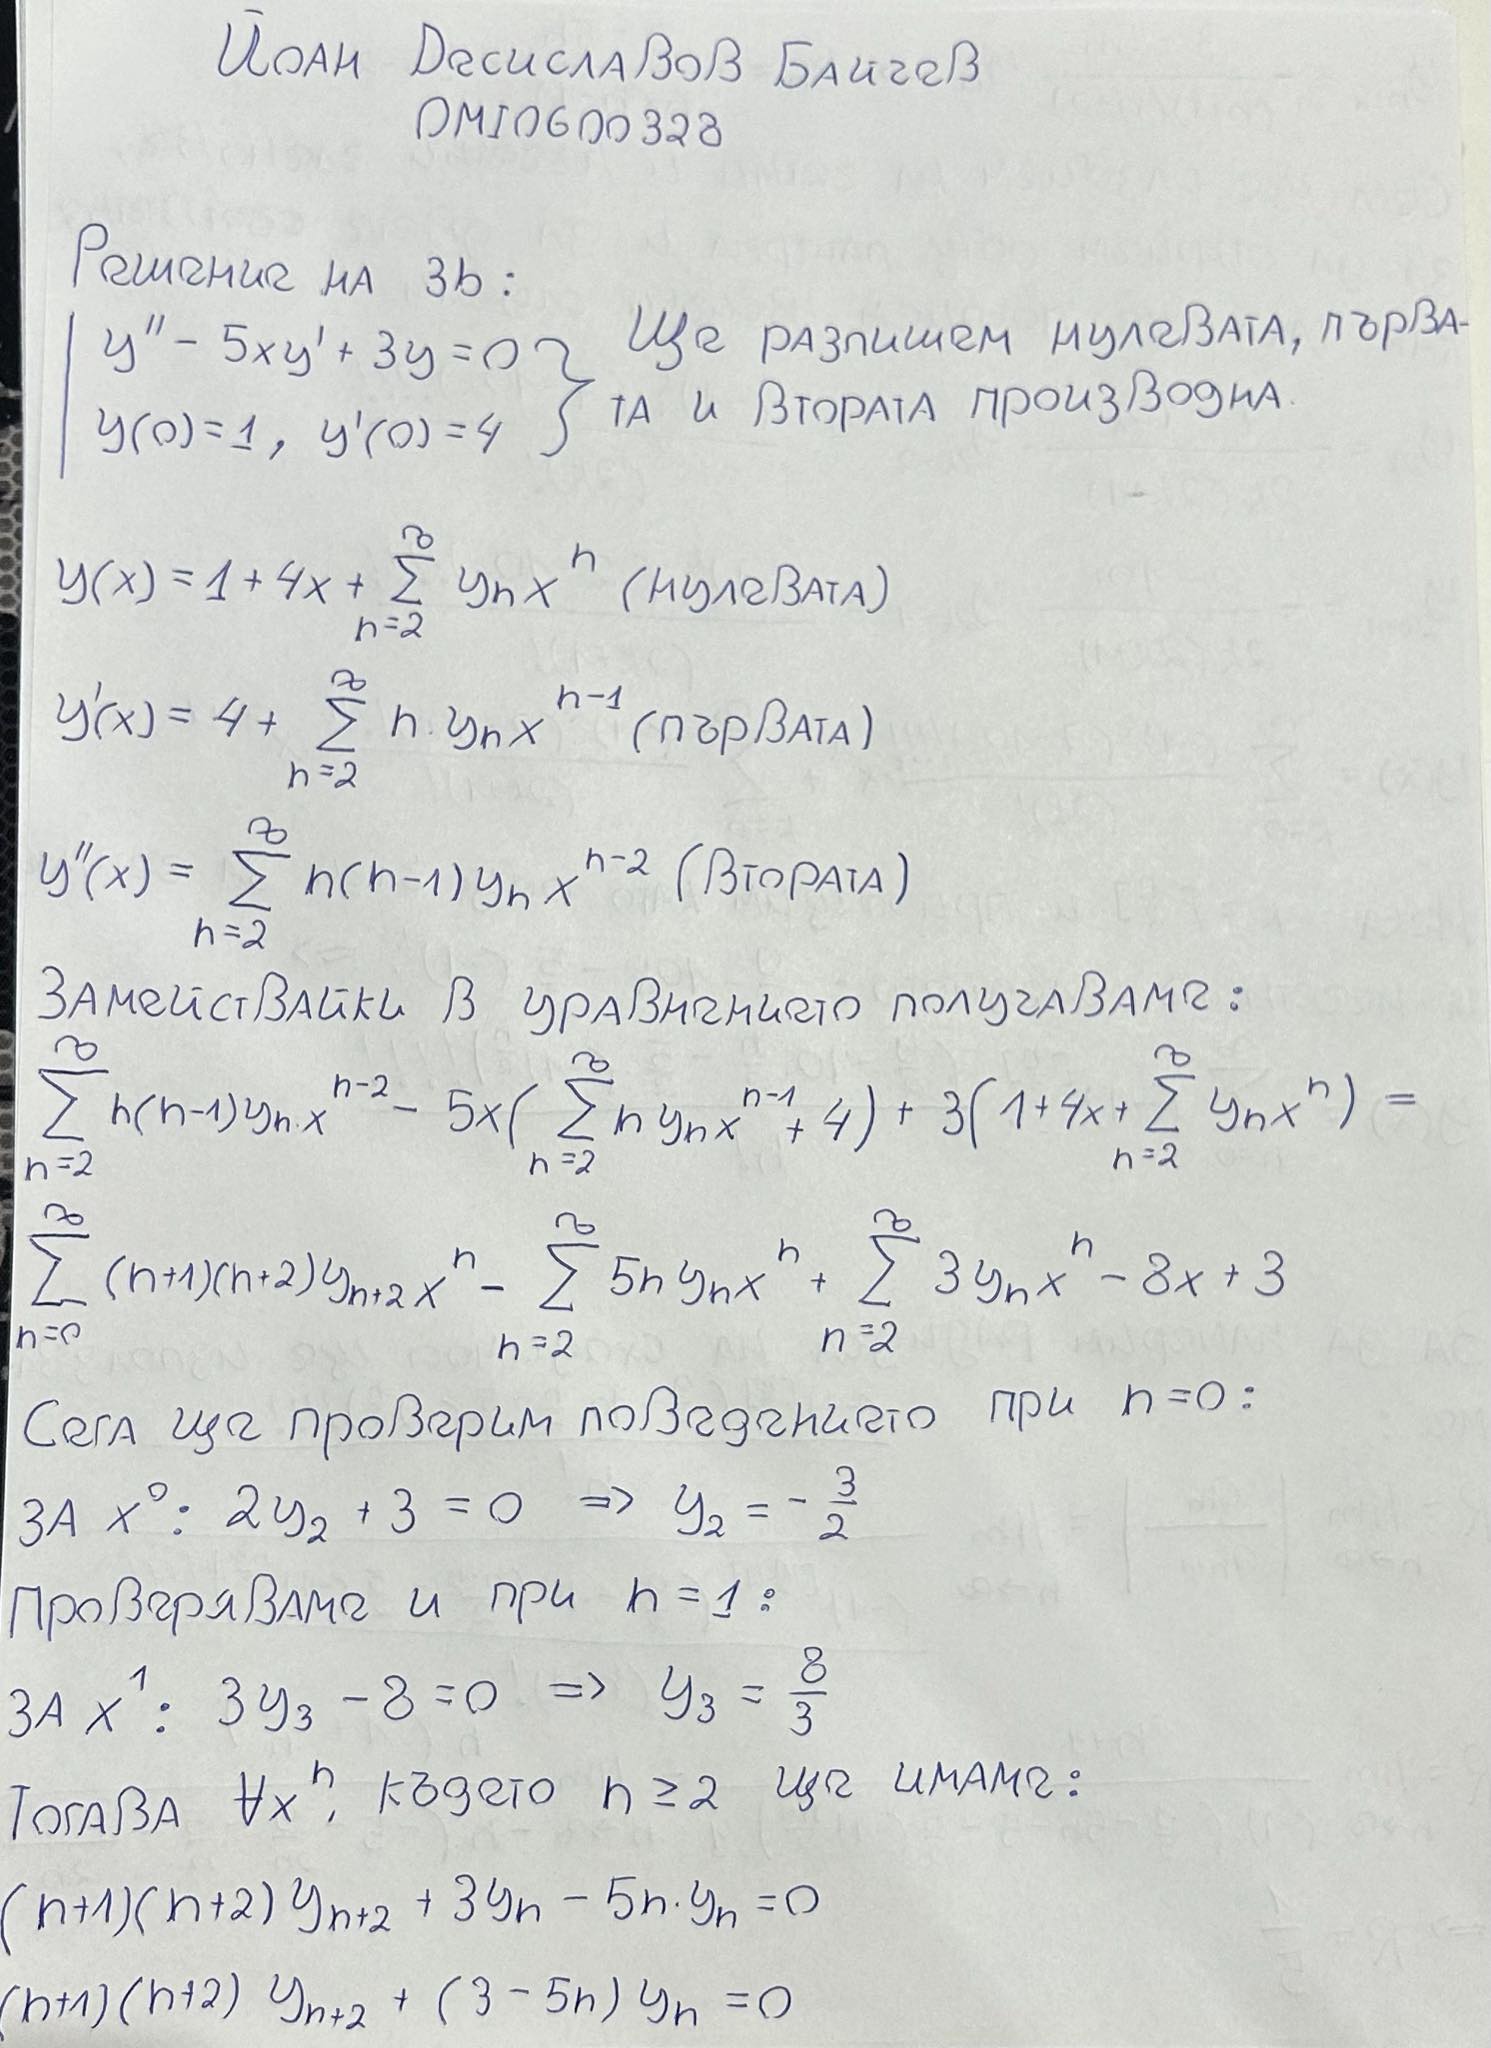 Йоан Десиславов Байчев
0MI0600328
Решение на 3b:
y'' - 5xy' + 3y = 0 } Ще разпишем нулевата, първа-
y(0) = 1, y'(0) = 4 та и втората производна.
y(x) = 1 + 4x + ∑_{n=2}^{∞} y_n x^n (нулевата)
y'(x) = 4 + ∑_{n=2}^{∞} n·y_n x^{n-1} (първата)
y''(x) = ∑_{n=2}^{∞} n(n-1)y_n x^{n-2} (втората)
Замействайки в уравнението получаваме:
∑_{n=2}^{∞} n(n-1)y_n·x^{n-2} - 5x(∑_{n=2}^{∞} n y_n x^{n-1} + 4) + 3(1 + 4x + ∑_{n=2}^{∞} y_n x^n) =
∑_{n=0}^{∞} (n+1)(n+2)y_{n+2} x^n - ∑_{n=2}^{∞} 5n y_n x^n + ∑_{n=2}^{∞} 3y_n x^n - 8x + 3
Сега ще проверим поведението при n=0:
За x^0: 2y_2 + 3 = 0 => y_2 = -3/2
Проверяваме и при n=1:
За x^1: 3y_3 - 8 = 0 => y_3 = 8/3
Тогава ∀x^n, където n ≥ 2 ще имаме:
(n+1)(n+2) y_{n+2} + 3y_n - 5n·y_n = 0
(n+1)(n+2) y_{n+2} + (3 - 5n) y_n = 0